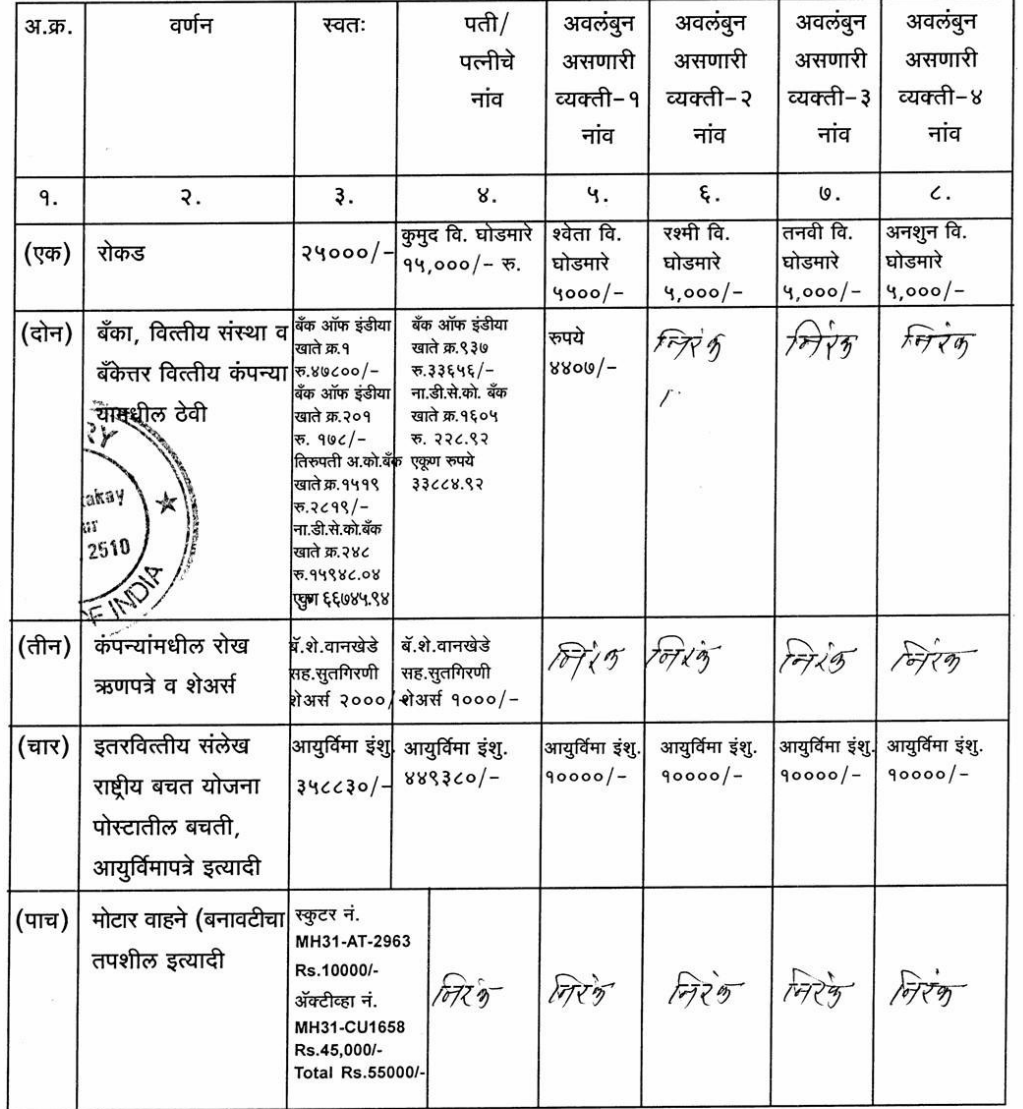 अ.क्र.
वर्णन
स्वतः
पती/
पत्नीचे
नांव
अवलंबुन
असणारी
व्यक्ती-१
नांव
अवलंबुन
असणारी
व्यक्ती-२
नांव
अवलंबुन
असणारी
व्यक्ती-३
नांव
अवलंबुन
असणारी
व्यक्ती-४
नांव
१.
२.
३.
४.
५.
६.
७.
८.
(एक)
रोकड
२५०००/-
कुमुद वि. घोडमारे
१५,०००/- रु.
श्वेता वि.
घोडमारे
५०००/-
रश्मी वि.
घोडमारे
५,०००/-
तनवी वि.
घोडमारे
५,०००/-
अनशुन वि.
घोडमारे
५,०००/-
(दोन)
बँका, वित्तीय संस्था व
बँकेत्तर वित्तीय कंपन्या
यामधील ठेवी
बँक ऑफ इंडीया
खाते क्र.१
रु.४७८००/-
बँक ऑफ इंडीया
खाते क्र.२०१
रु. १७८/-
तिरुपती अ.को.बँक
खाते क्र.१५१९
रु.२८१९/-
ना.डी.से.को.बँक
खाते क्र.२४८
रु.१५९४८.०४
एकुण ६६७४५.९४
बँक ऑफ इंडीया
खाते क्र.९३७
रु.३३६५६/-
ना.डी.से.को. बँक
खाते क्र.१६०५
रु. २२८.९२
एकूण रुपये
३३८८४.९२
रुपये
४४०७/-
निरंक
निरंक
निरंक
RY
akay
ur
2510
OF INDIA
(तीन)
कंपन्यांमधील रोख
ऋणपत्रे व शेअर्स
बॅ.शे.वानखेडे
सह.सुतगिरणी
शेअर्स २०००/-
बॅ.शे.वानखेडे
सह.सुतगिरणी
शेअर्स १०००/-
निरंक
निरंक
निरंक
निरंक
(चार)
इतरवित्तीय संलेख
राष्ट्रीय बचत योजना
पोस्टातील बचती,
आयुर्विमापत्रे इत्यादी
आयुर्विमा इंशु.
३५८८३०/-
आयुर्विमा इंशु.
४४९३८०/-
आयुर्विमा इंशु.
१००००/-
आयुर्विमा इंशु.
१००००/-
आयुर्विमा इंशु.
१००००/-
आयुर्विमा इंशु.
१००००/-
(पाच)
मोटार वाहने (बनावटीचा
तपशील इत्यादी
स्कुटर नं.
MH31-AT-2963
Rs.10000/-
ॲक्टीव्हा नं.
MH31-CU1658
Rs.45,000/-
Total Rs.55000/-
निरंक
निरंक
निरंक
निरंक
निरंक